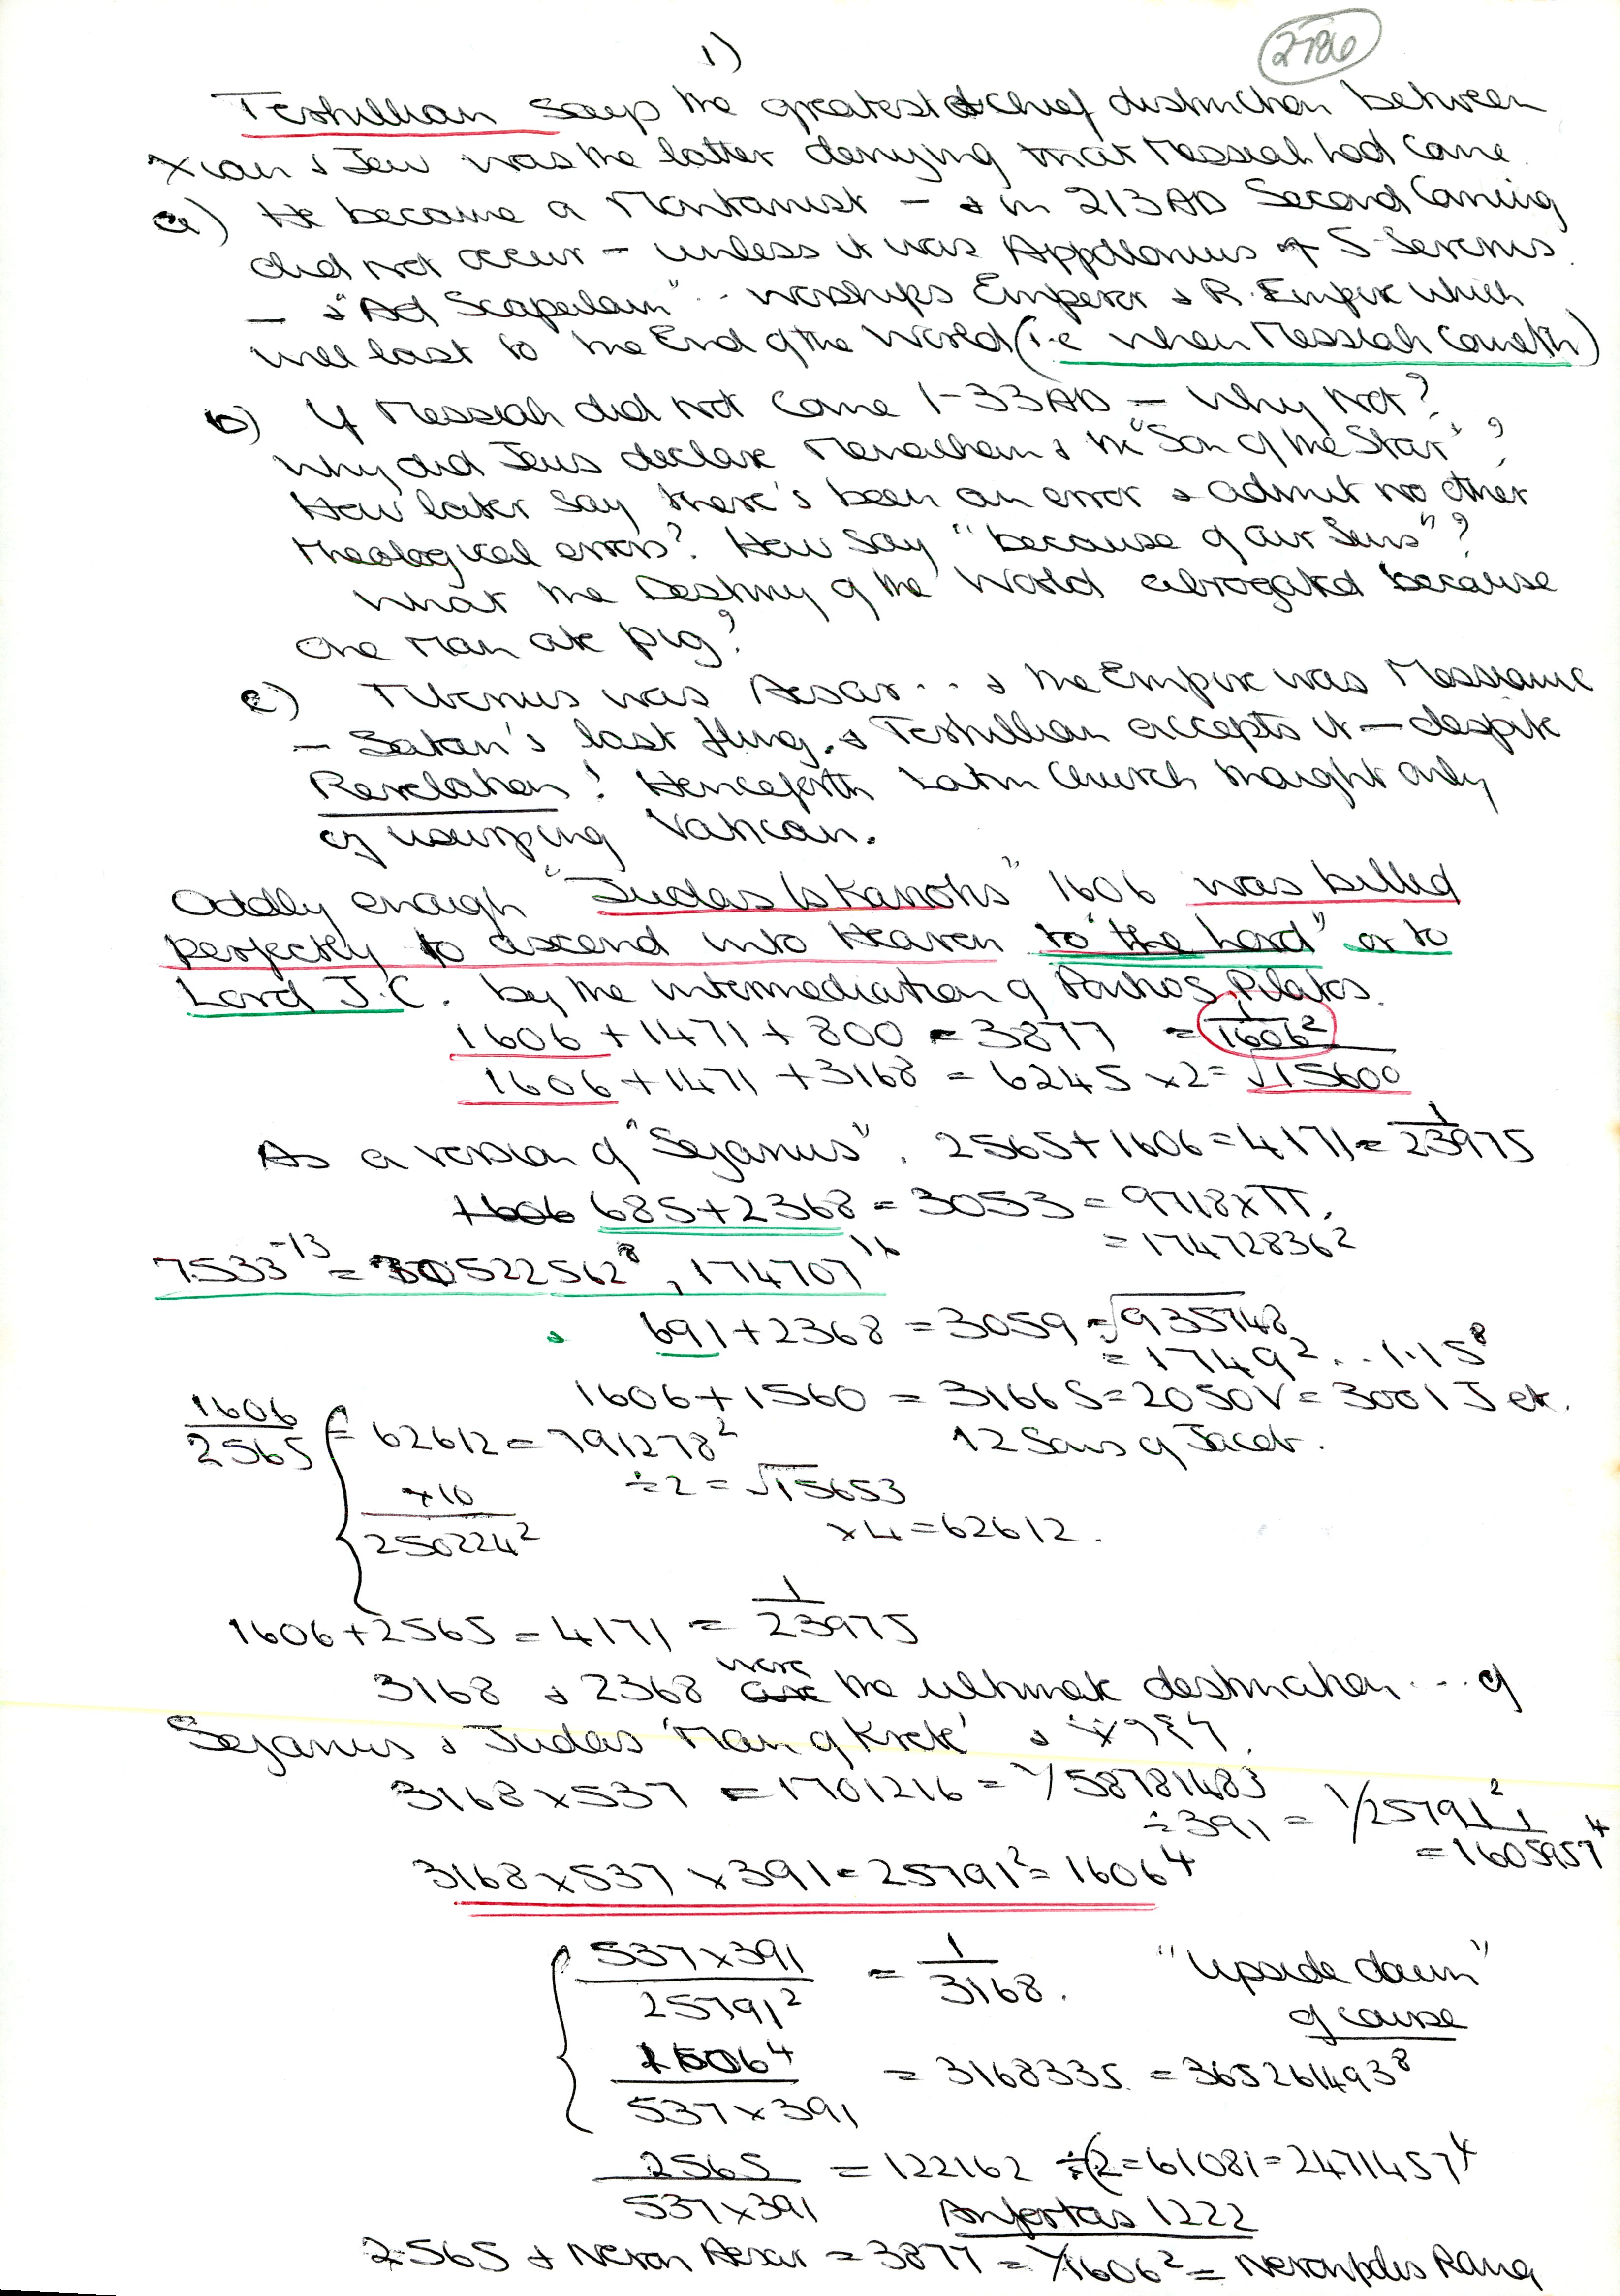 1)
2786
Tertullian says the greatest & chief distinction between
Xian & Jew was the latter denying that Messiah had come.
a) He became a Montanist – & in 213AD Second Coming
did not occur – unless it was Appollonius of S. Severus.
– & "Ad Scapulam" .. worships Emperor & R. Empire which
will last to the End of the World (i.e when Messiah cometh)
b) If Messiah did not come 1-33AD – why not?
why did Jews declare Menachem & the "Son of the Star"?
How later say there's been an error & admit no other
theological errors? How say "because of our Sins"?
What the Destiny of the World abrogated because
one man ate pig?
c) Tiberius was Aesar... & the Empire was Messianic
– Satan's last fling. & Tertullian accepts it – despite
Revelation! Henceforth Latin Church thought only
of usurping Vatican.
Oddly enough "Judas Iskariotes" 1606 was billed
perfectly to ascend into Heaven to "the Lord" or to
Lord J.C. by the intermediation of Pontios Pilatos.
1606 + 1471 + 800 = 3877 = 1/1606²
1606 + 1471 + 3168 = 6245 x2 = √15600
As a version of "Sejanus". 2565 + 1606 = 4171 = 1/23975
1606 685 + 2368 = 3053 = 9718 x π.
= 174728362
7.533⁻¹³ = 30522562⁸, 174707¹⁶
& 691 + 2368 = 3059 = √935748
= 1749² .. 1.15⁸
1606 + 1560 = 3166 S = 2050 V = 3001 J etc.
1606/2565 = 62612 = 791278² 12 Sons of Jacob.
÷2 = √15653
x10
250224² x4 = 62612.
1606 + 2565 = 4171 = 1/23975
3168 & 2368 are were the ultimate destination... of
Sejanus & Judas 'Man of Krete' &
3168 x 537 = 1701216 = 1/58781483
÷391 = 1/25791²
= 1605957⁴
3168 x 537 x 391 = 25791² = 1606⁴
537x391/25791² = 1/3168. "Upside down"
of course
1606⁴/537x391 = 3168335. = 365261493⁸
2565/537x391 = 122162 ÷(2 = 61081 = 2471457⁴
Anfortas 1222
2565 + Neron Aesar = 3877 = 1/1606² = Neronpolis Roma